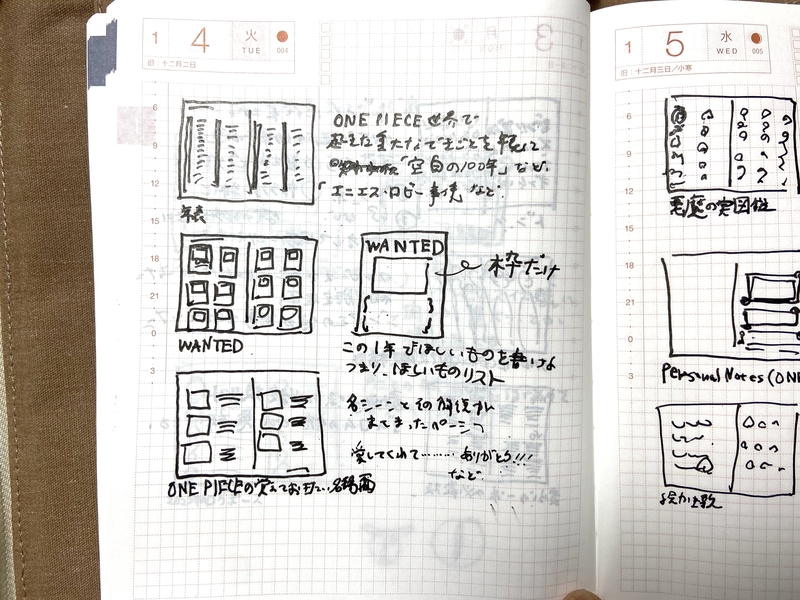 1
4
火
TUE
004
旧:十二月二日
6
9
12
15
18
21
0
3
年表
ONE PIECE 世界で
起きた重大なできごとを年表にして
「空白の100年」など、
「エニエス・ロビー事件」など
WANTED
WANTED
枠だけ
この1年でほしいものを書ける
つまり、ほしいものリスト
名シーンとその解説が
まとまったページ
愛してくれて……… ありがとう!!!
など
ONE PIECEの覚えておきたい名場面
1
5
水
WED
005
旧:十二月三日/小寒
6
9
12
18
21
0
3
悪魔の実図鑑
Personal Notes (ON